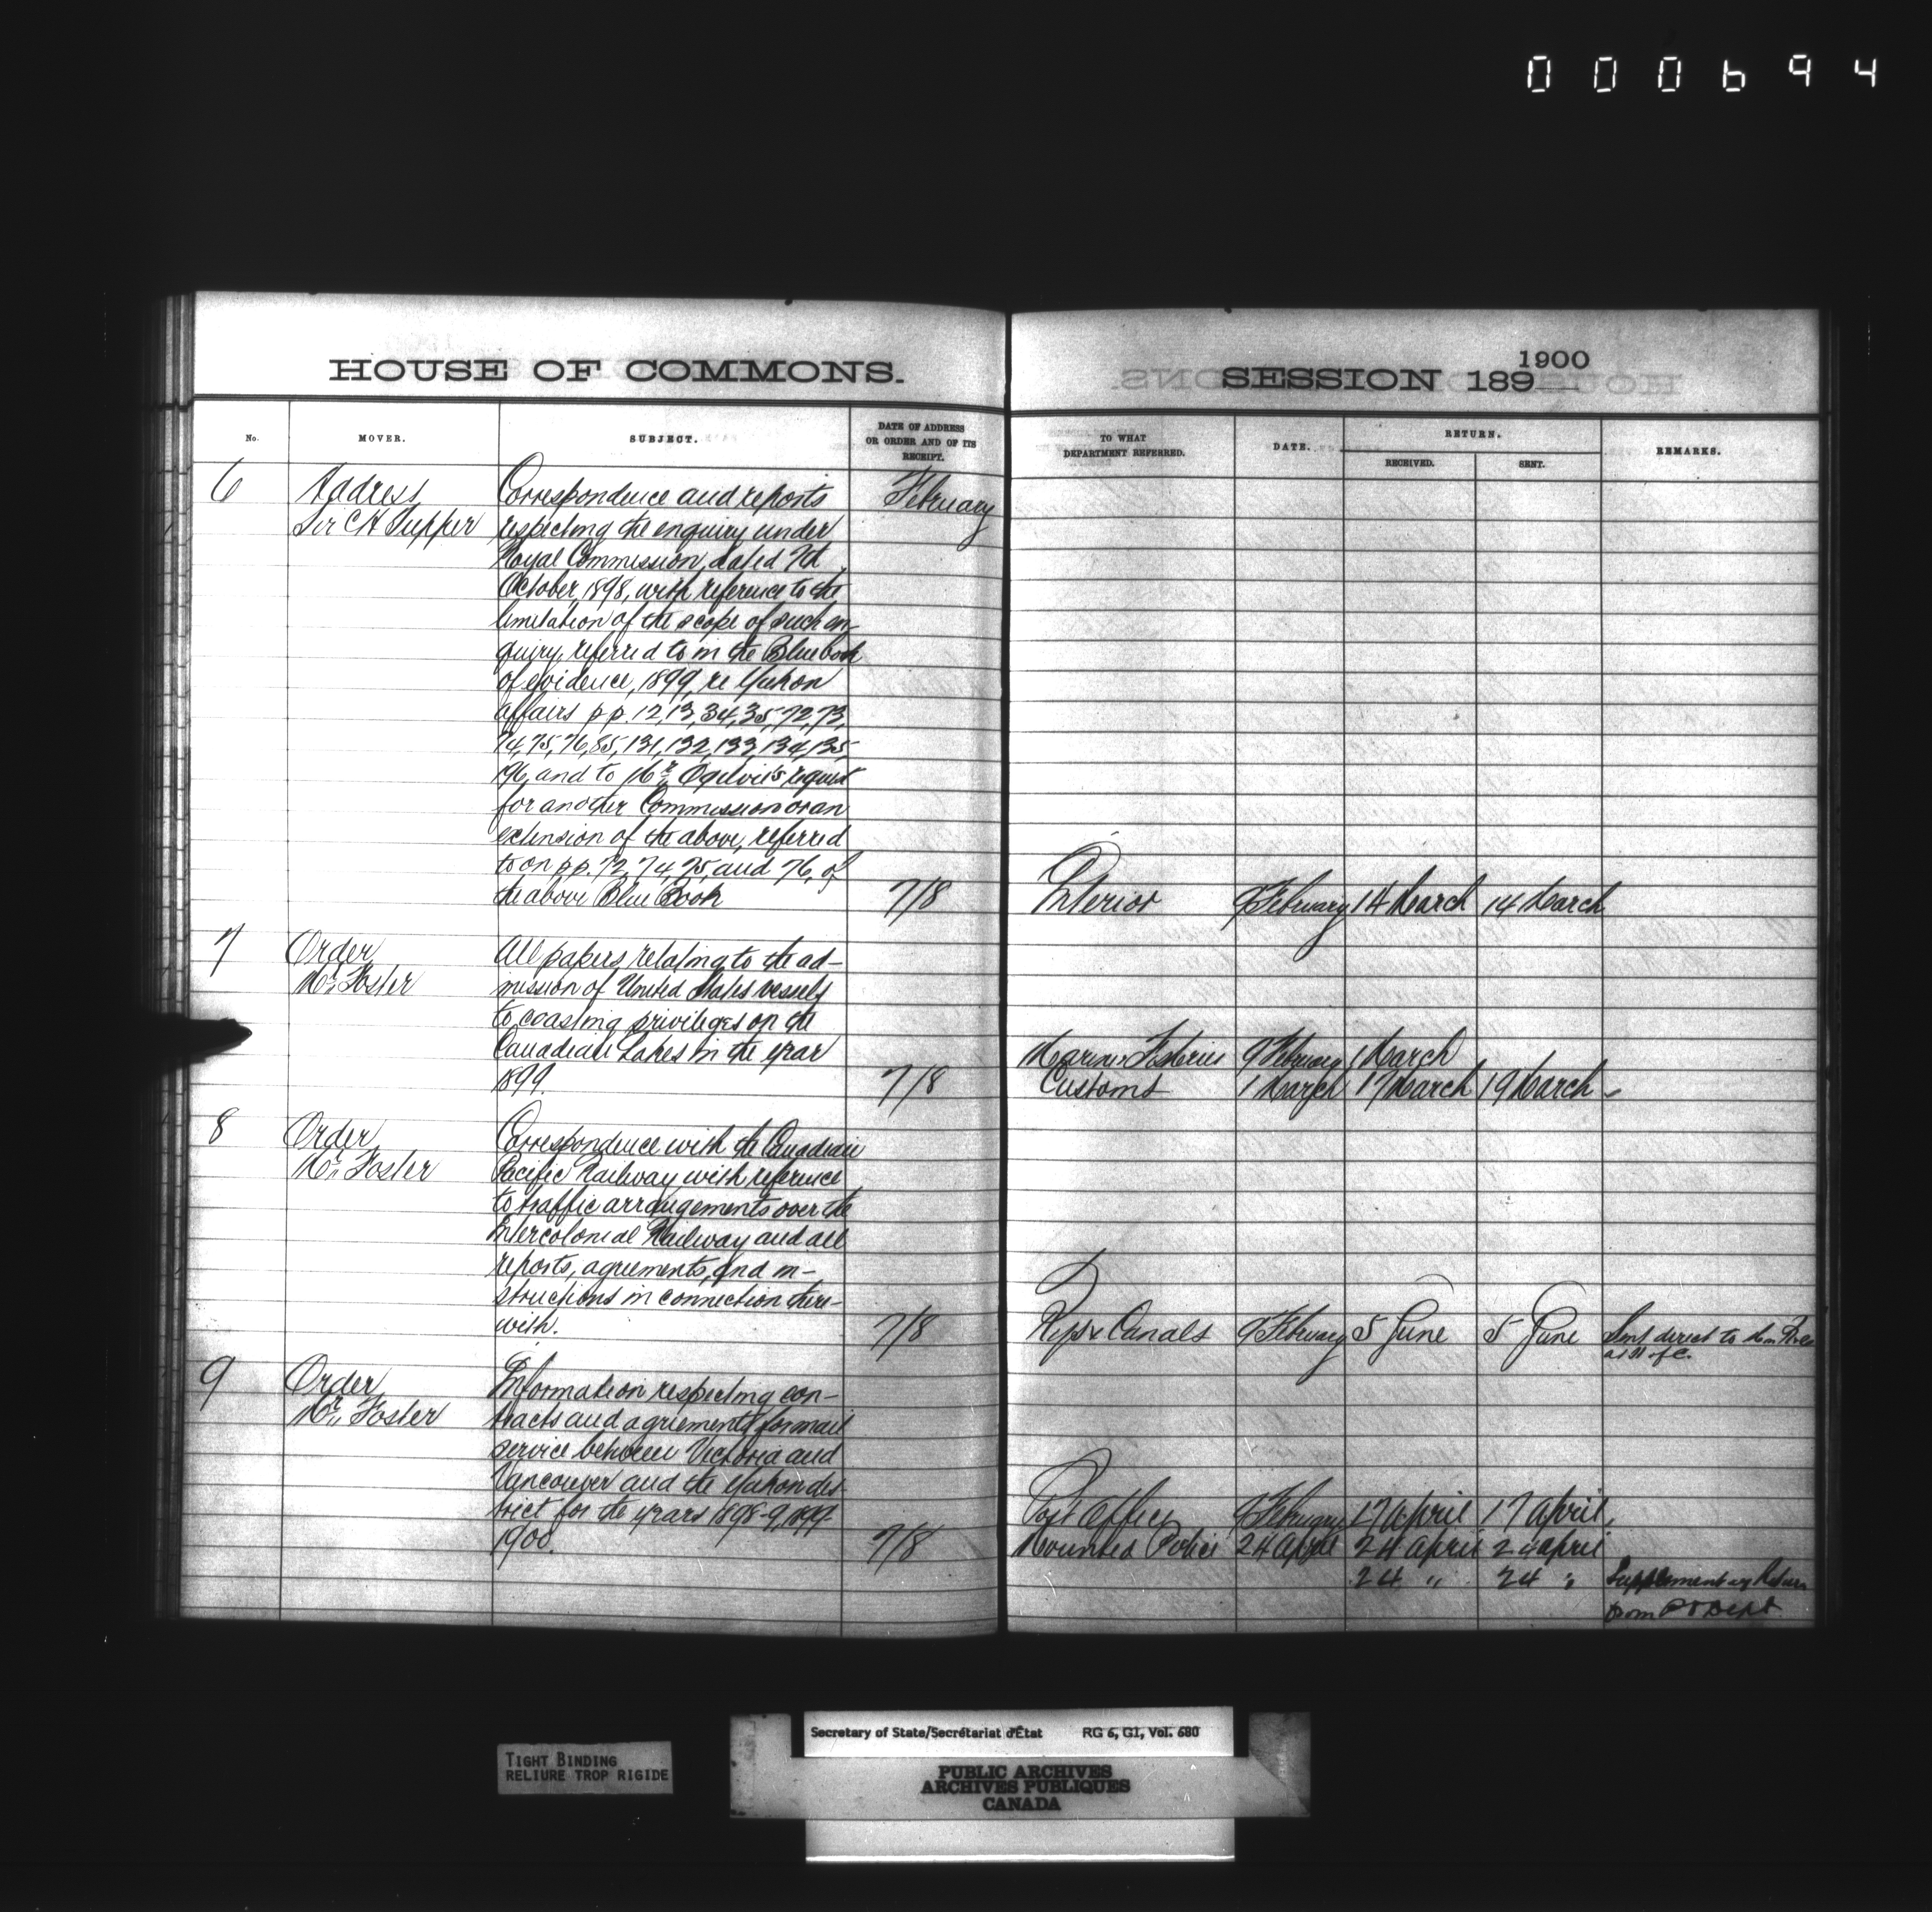 000694
HOUSE OF COMMONS.
No.
MOVER.
SUBJECT.
DATE OF ADDRESS
OR ORDER AND OF ITS
RECEIPT.
6
Address
Sir C H Tupper
Correspondence and reports
respecting the enquiry under
Royal Commission, dated 7th
October, 1898, with reference to the
limitation of the scope of such en-
quiry, referred to in the Blue book
of evidence, 1899, re Yukon
affairs pp. 12, 13, 34, 35, 72, 73,
74, 75, 76, 85, 131, 132, 133, 134, 135,
196, and to Mr. Ogilvie's request
for another Commission or an
extension of the above, referred
to on pp. 72, 74, 75, and 76, of
the above Blue Book
February
7/8
7
Order
Mr. Foster
All papers relating to the ad-
mission of United States vessels
to coasting privileges on the
Canadian Lakes in the year
1899.
7/8
8
Order
Mr. Foster
Correspondence with the Canadian
Pacific Railway with reference
to traffic arrangements over the
Intercolonial Railway and all
reports, agreements, and in-
structions in connection there-
with.
7/8
9
Order
Mr. Foster
Information respecting con-
tracts and agreements for mail
service between Victoria and
Vancouver and the Yukon dis-
trict for the years 1898-9, 1899-
1900.
7/8
SESSION 189
1900
TO WHAT
DEPARTMENT REFERRED.
DATE.
RETURN.
RECEIVED.
SENT.
REMARKS.
Interior 9 February 14 March 14 March
Marine & Fisheries 9 February 1 March
Customs 1 March 17 March 19 March
Rys & Canals 9 February 5 June 5 June Sent direct to
at H of C.
Post Office 9 February 17 April 17 April
Mounted Police 24 April 24 April 24 April
24 " 24 " Supplementary Return
from P O Dept
TIGHT BINDING
RELIURE TROP RIGIDE
Secretary of State/Secrétariat d'État RG 6, G1, Vol. 680
PUBLIC ARCHIVES
ARCHIVES PUBLIQUES
CANADA